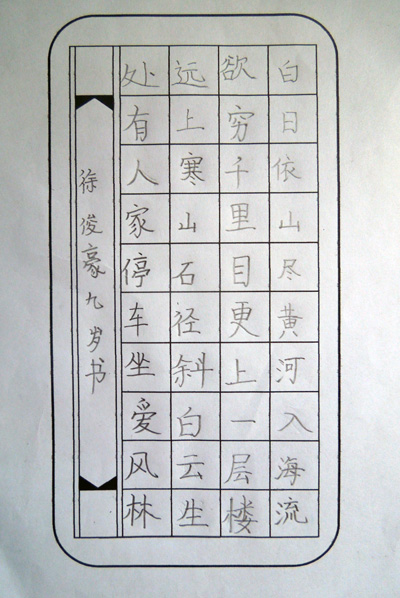 白日依山尽黄河入海流
欲穷千里目更上一层楼
远上寒山石径斜白云生
处有人家停车坐爱风林
徐俊豪九岁书